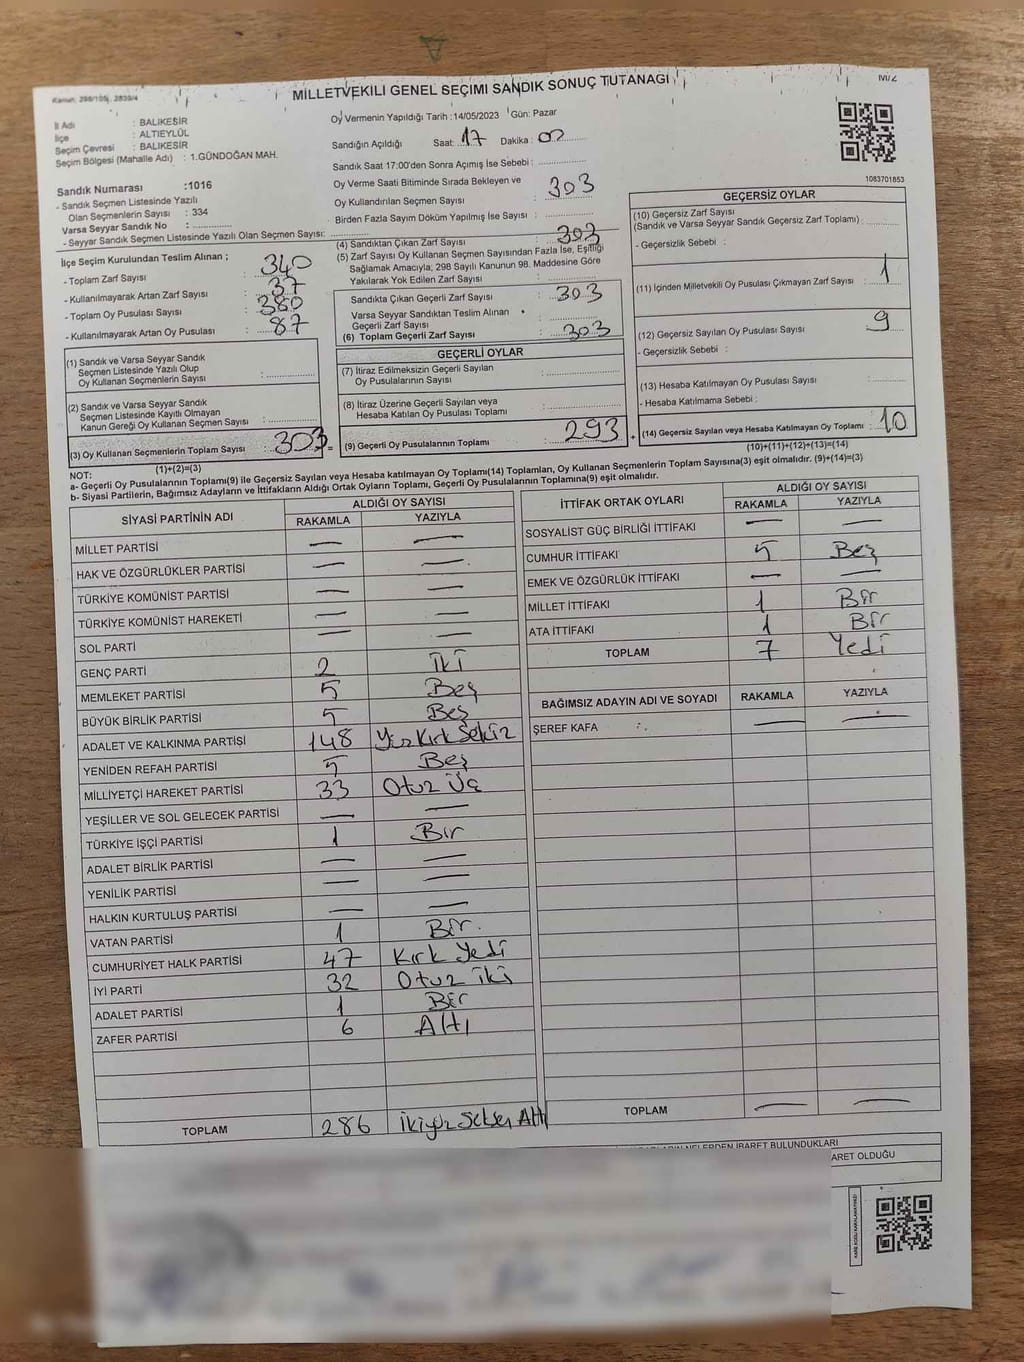 Kanun: 298/105, 2839/4
MİLLETVEKİLİ GENEL SEÇİMİ SANDIK SONUÇ TUTANAĞI
İl Adı : BALIKESİR
İlçe : ALTIEYLÜL
Seçim Çevresi : BALIKESİR
Seçim Bölgesi (Mahalle Adı) : 1.GÜNDOĞAN MAH.
Sandık Numarası :1016
- Sandık Seçmen Listesinde Yazılı
Olan Seçmenlerin Sayısı : 334
Varsa Seyyar Sandık No :
- Seyyar Sandık Seçmen Listesinde Yazılı Olan Seçmen Sayısı:
Oy Vermenin Yapıldığı Tarih :14/05/2023 Gün: Pazar
Sandığın Açıldığı Saat: 17 Dakika : 00
Sandık Saat 17:00'den Sonra Açımış İse Sebebi :
Oy Verme Saati Bitiminde Sırada Bekleyen ve
Oy Kullandırılan Seçmen Sayısı : 303
Birden Fazla Sayım Döküm Yapılmış İse Sayısı :
1083701853
İlçe Seçim Kurulundan Teslim Alınan ;
- Toplam Zarf Sayısı : 340
- Kullanılmayarak Artan Zarf Sayısı : 37
- Toplam Oy Pusulası Sayısı : 380
- Kullanılmayarak Artan Oy Pusulası : 87
(1) Sandık ve Varsa Seyyar Sandık
Seçmen Listesinde Yazılı Olup
Oy Kullanan Seçmenlerin Sayısı :
(2) Sandık ve Varsa Seyyar Sandık
Seçmen Listesinde Kayıtlı Olmayan
Kanun Gereği Oy Kullanan Seçmen Sayısı :
(3) Oy Kullanan Seçmenlerin Toplam Sayısı : 303
(1)+(2)=(3)
(4) Sandıktan Çıkan Zarf Sayısı : 303
(5) Zarf Sayısı Oy Kullanan Seçmen Sayısından Fazla İse, Eşitliği
Sağlamak Amacıyla; 298 Sayılı Kanunun 98. Maddesine Göre
Yakılarak Yok Edilen Zarf Sayısı :
Sandıkta Çıkan Geçerli Zarf Sayısı : 303
Varsa Seyyar Sandıktan Teslim Alınan
Geçerli Zarf Sayısı :
(6) Toplam Geçerli Zarf Sayısı : 303
GEÇERLİ OYLAR
(7) İtiraz Edilmeksizin Geçerli Sayılan
Oy Pusulalarının Sayısı :
(8) İtiraz Üzerine Geçerli Sayılan veya
Hesaba Katılan Oy Pusulası Toplamı :
(9) Geçerli Oy Pusulalarının Toplamı : 293
GEÇERSİZ OYLAR
(10) Geçersiz Zarf Sayısı
(Sandık ve Varsa Seyyar Sandık Geçersiz Zarf Toplamı) :
- Geçersizlik Sebebi :
(11) İçinden Milletvekili Oy Pusulası Çıkmayan Zarf Sayısı : 1
(12) Geçersiz Sayılan Oy Pusulası Sayısı : 9
- Geçersizlik Sebebi :
(13) Hesaba Katılmayan Oy Pusulası Sayısı :
- Hesaba Katılmama Sebebi :
(14) Geçersiz Sayılan veya Hesaba Katılmayan Oy Toplamı : 10
(10)+(11)+(12)+(13)=(14)
NOT:
a- Geçerli Oy Pusulalarının Toplamı(9) ile Geçersiz Sayılan veya Hesaba katılmayan Oy Toplamı(14) Toplamları, Oy Kullanan Seçmenlerin Toplam Sayısına(3) eşit olmalıdır. (9)+(14)=(3)
b- Siyasi Partilerin, Bağımsız Adayların ve İttifakların Aldığı Ortak Oyların Toplamı, Geçerli Oy Pusulalarının Toplamına(9) eşit olmalıdır.
SİYASİ PARTİNİN ADI ALDIĞI OY SAYISI
RAKAMLA YAZIYLA
MİLLET PARTİSİ — —
HAK VE ÖZGÜRLÜKLER PARTİSİ — —
TÜRKİYE KOMÜNİST PARTİSİ — —
TÜRKİYE KOMÜNİST HAREKETİ — —
SOL PARTİ — —
GENÇ PARTİ 2 İki
MEMLEKET PARTİSİ 5 Beş
BÜYÜK BİRLİK PARTİSİ 5 Beş
ADALET VE KALKINMA PARTİSİ 148 Yüz Kırk Sekiz
YENİDEN REFAH PARTİSİ 5 Beş
MİLLİYETÇİ HAREKET PARTİSİ 33 Otuz Üç
YEŞİLLER VE SOL GELECEK PARTİSİ — —
TÜRKİYE İŞÇİ PARTİSİ 1 Bir
ADALET BİRLİK PARTİSİ — —
YENİLİK PARTİSİ — —
HALKIN KURTULUŞ PARTİSİ — —
VATAN PARTİSİ 1 Bir.
CUMHURİYET HALK PARTİSİ 47 Kırk Yedi
İYİ PARTİ 32 Otuz İki
ADALET PARTİSİ 1 Bir
ZAFER PARTİSİ 6 Altı
TOPLAM 286 İkiyüz Seksen Altı
İTTİFAK ORTAK OYLARI ALDIĞI OY SAYISI
RAKAMLA YAZIYLA
SOSYALİST GÜÇ BİRLİĞİ İTTİFAKI — —
CUMHUR İTTİFAKI 5 Beş
EMEK VE ÖZGÜRLÜK İTTİFAKI — —
MİLLET İTTİFAKI 1 Bir
ATA İTTİFAKI 1 Bir
TOPLAM 7 Yedi
BAĞIMSIZ ADAYIN ADI VE SOYADI RAKAMLA YAZIYLA
ŞEREF KAFA — —
TOPLAM — —
NELERDEN İBARET BULUNDUKLARI
OLDUĞU